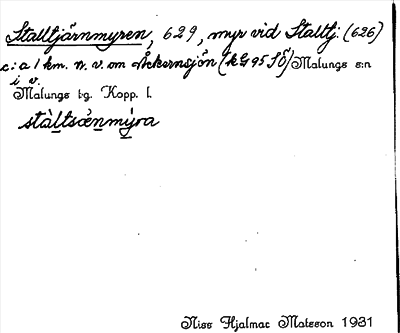 Stalltjärnmyren, 629, myr vid Stalltj. (626)
c:a 1 km. n. v. om Åckernsjön (kG 95 SÖ) Malungs s:n
i v.
Malungs t-g. Kopp. l.
stàltsǽnmýra
Niss Hjalmar Matsson 1931